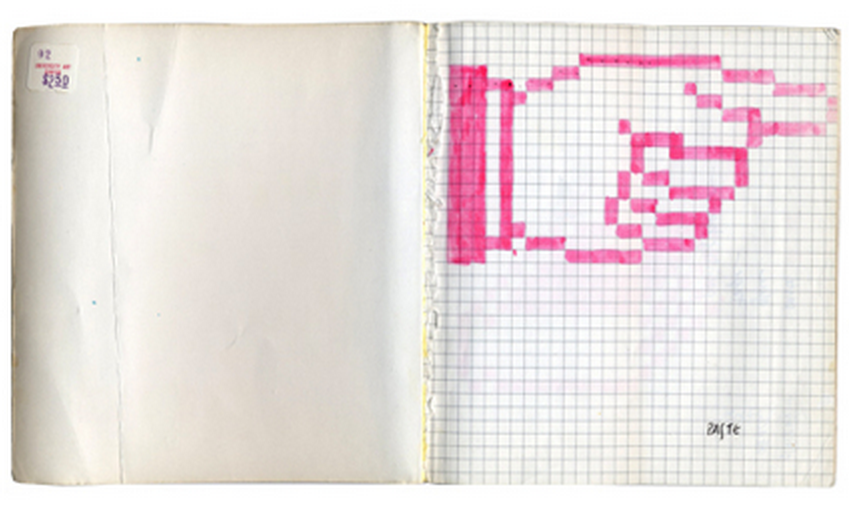 UNIVERSITY ART
$2.50
PASTE